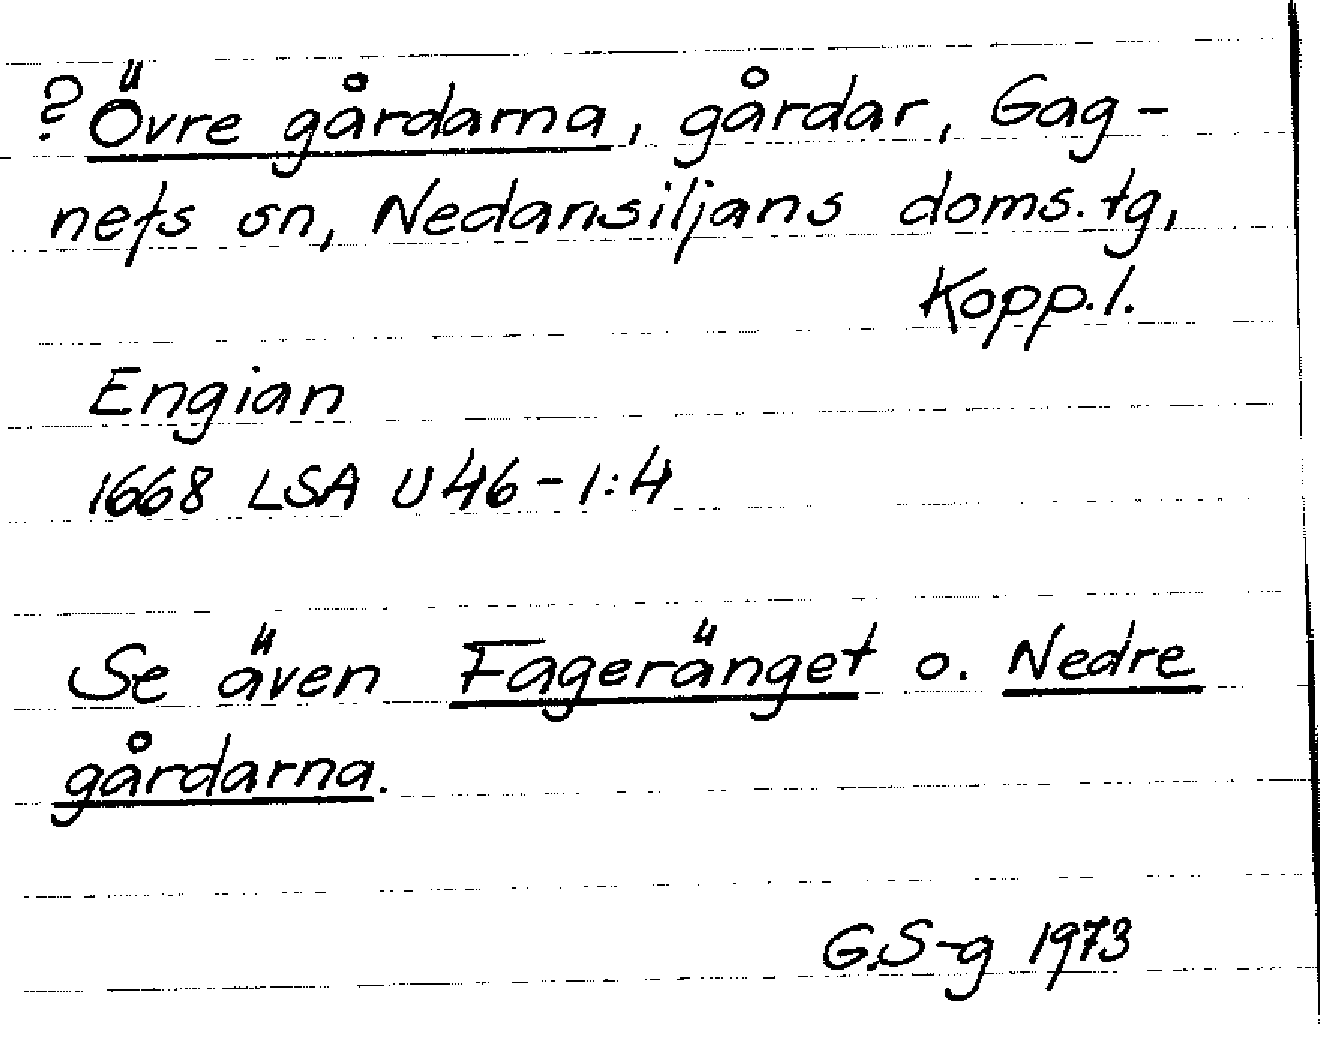 ? Övre gårdarna, gårdar, Gag-
nefs sn, Nedansiljans doms. tg,
Kopp. l.
Engian
1668 LSA U46-1:4
Se även Fageränget o. Nedre
gårdarna.
G.S-g 1973